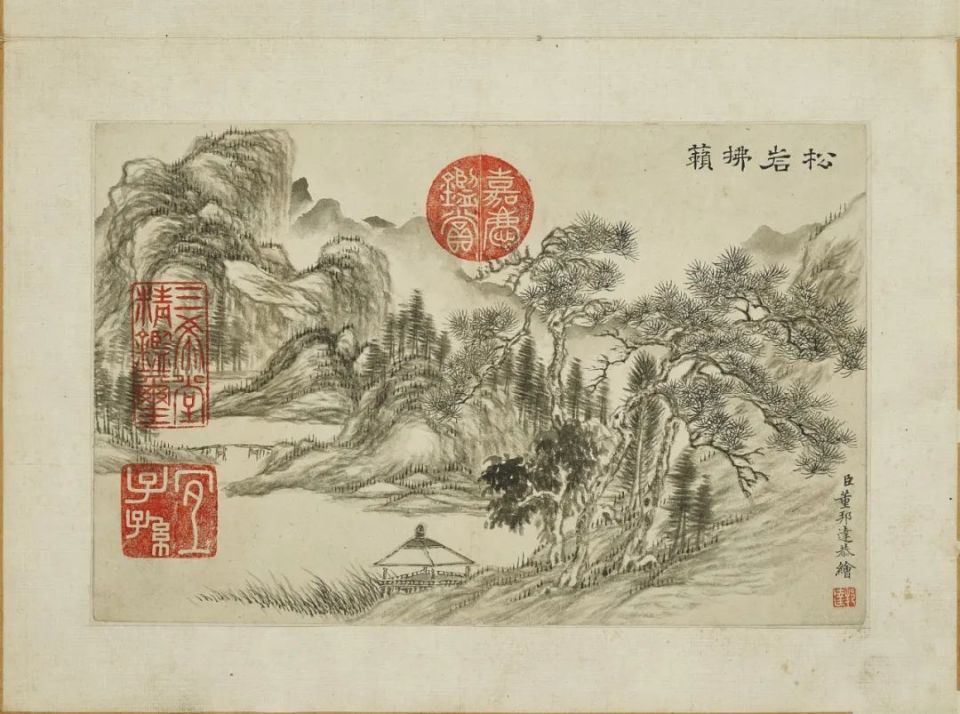 松岩拂籟
嘉慶鑑賞
三希堂
精鑑璽
宜子孫
臣董邦達恭繪
邦達